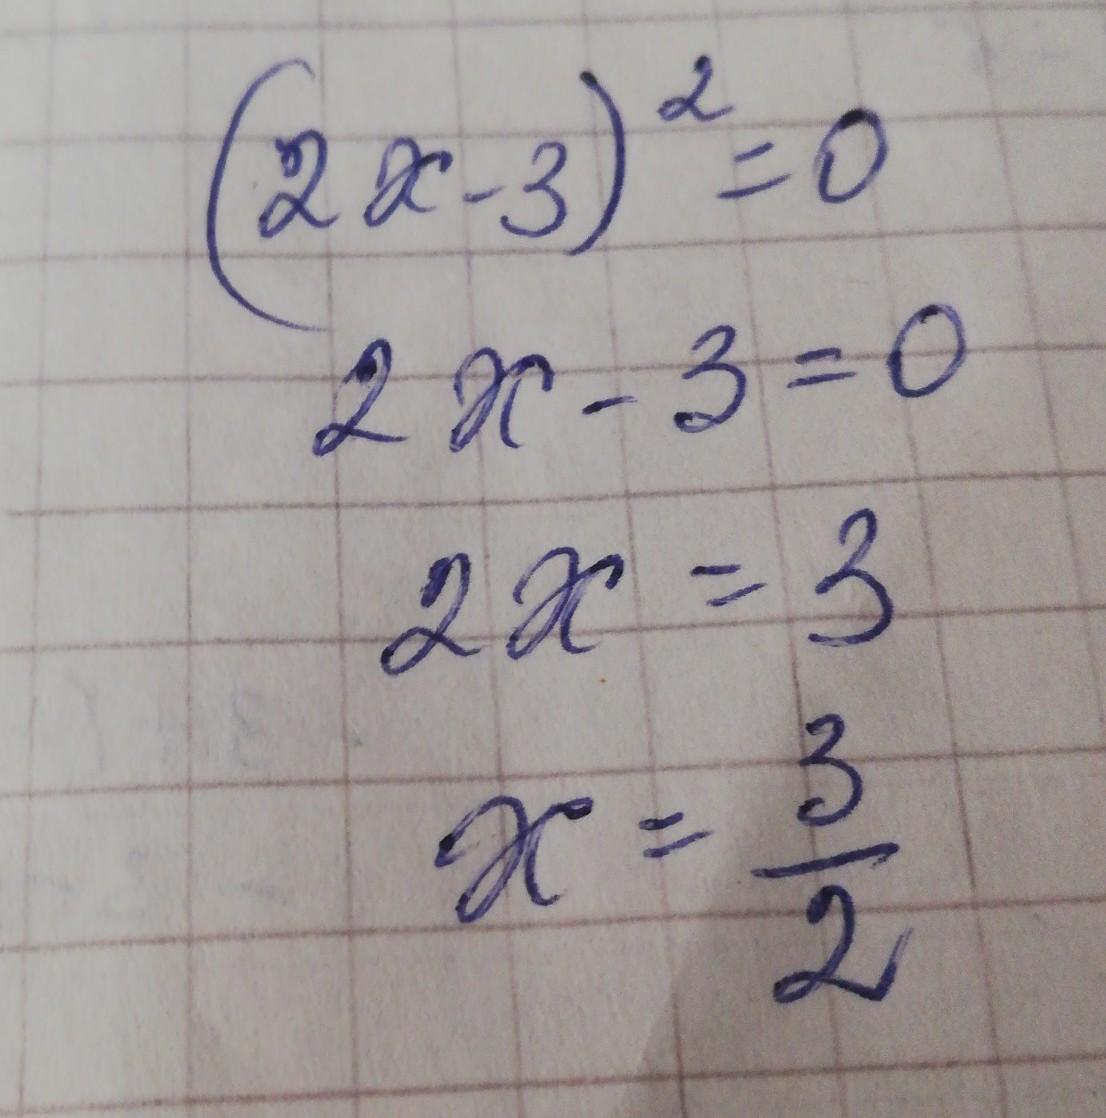 (2x-3)²=0
2x-3=0
2x=3
x=3/2